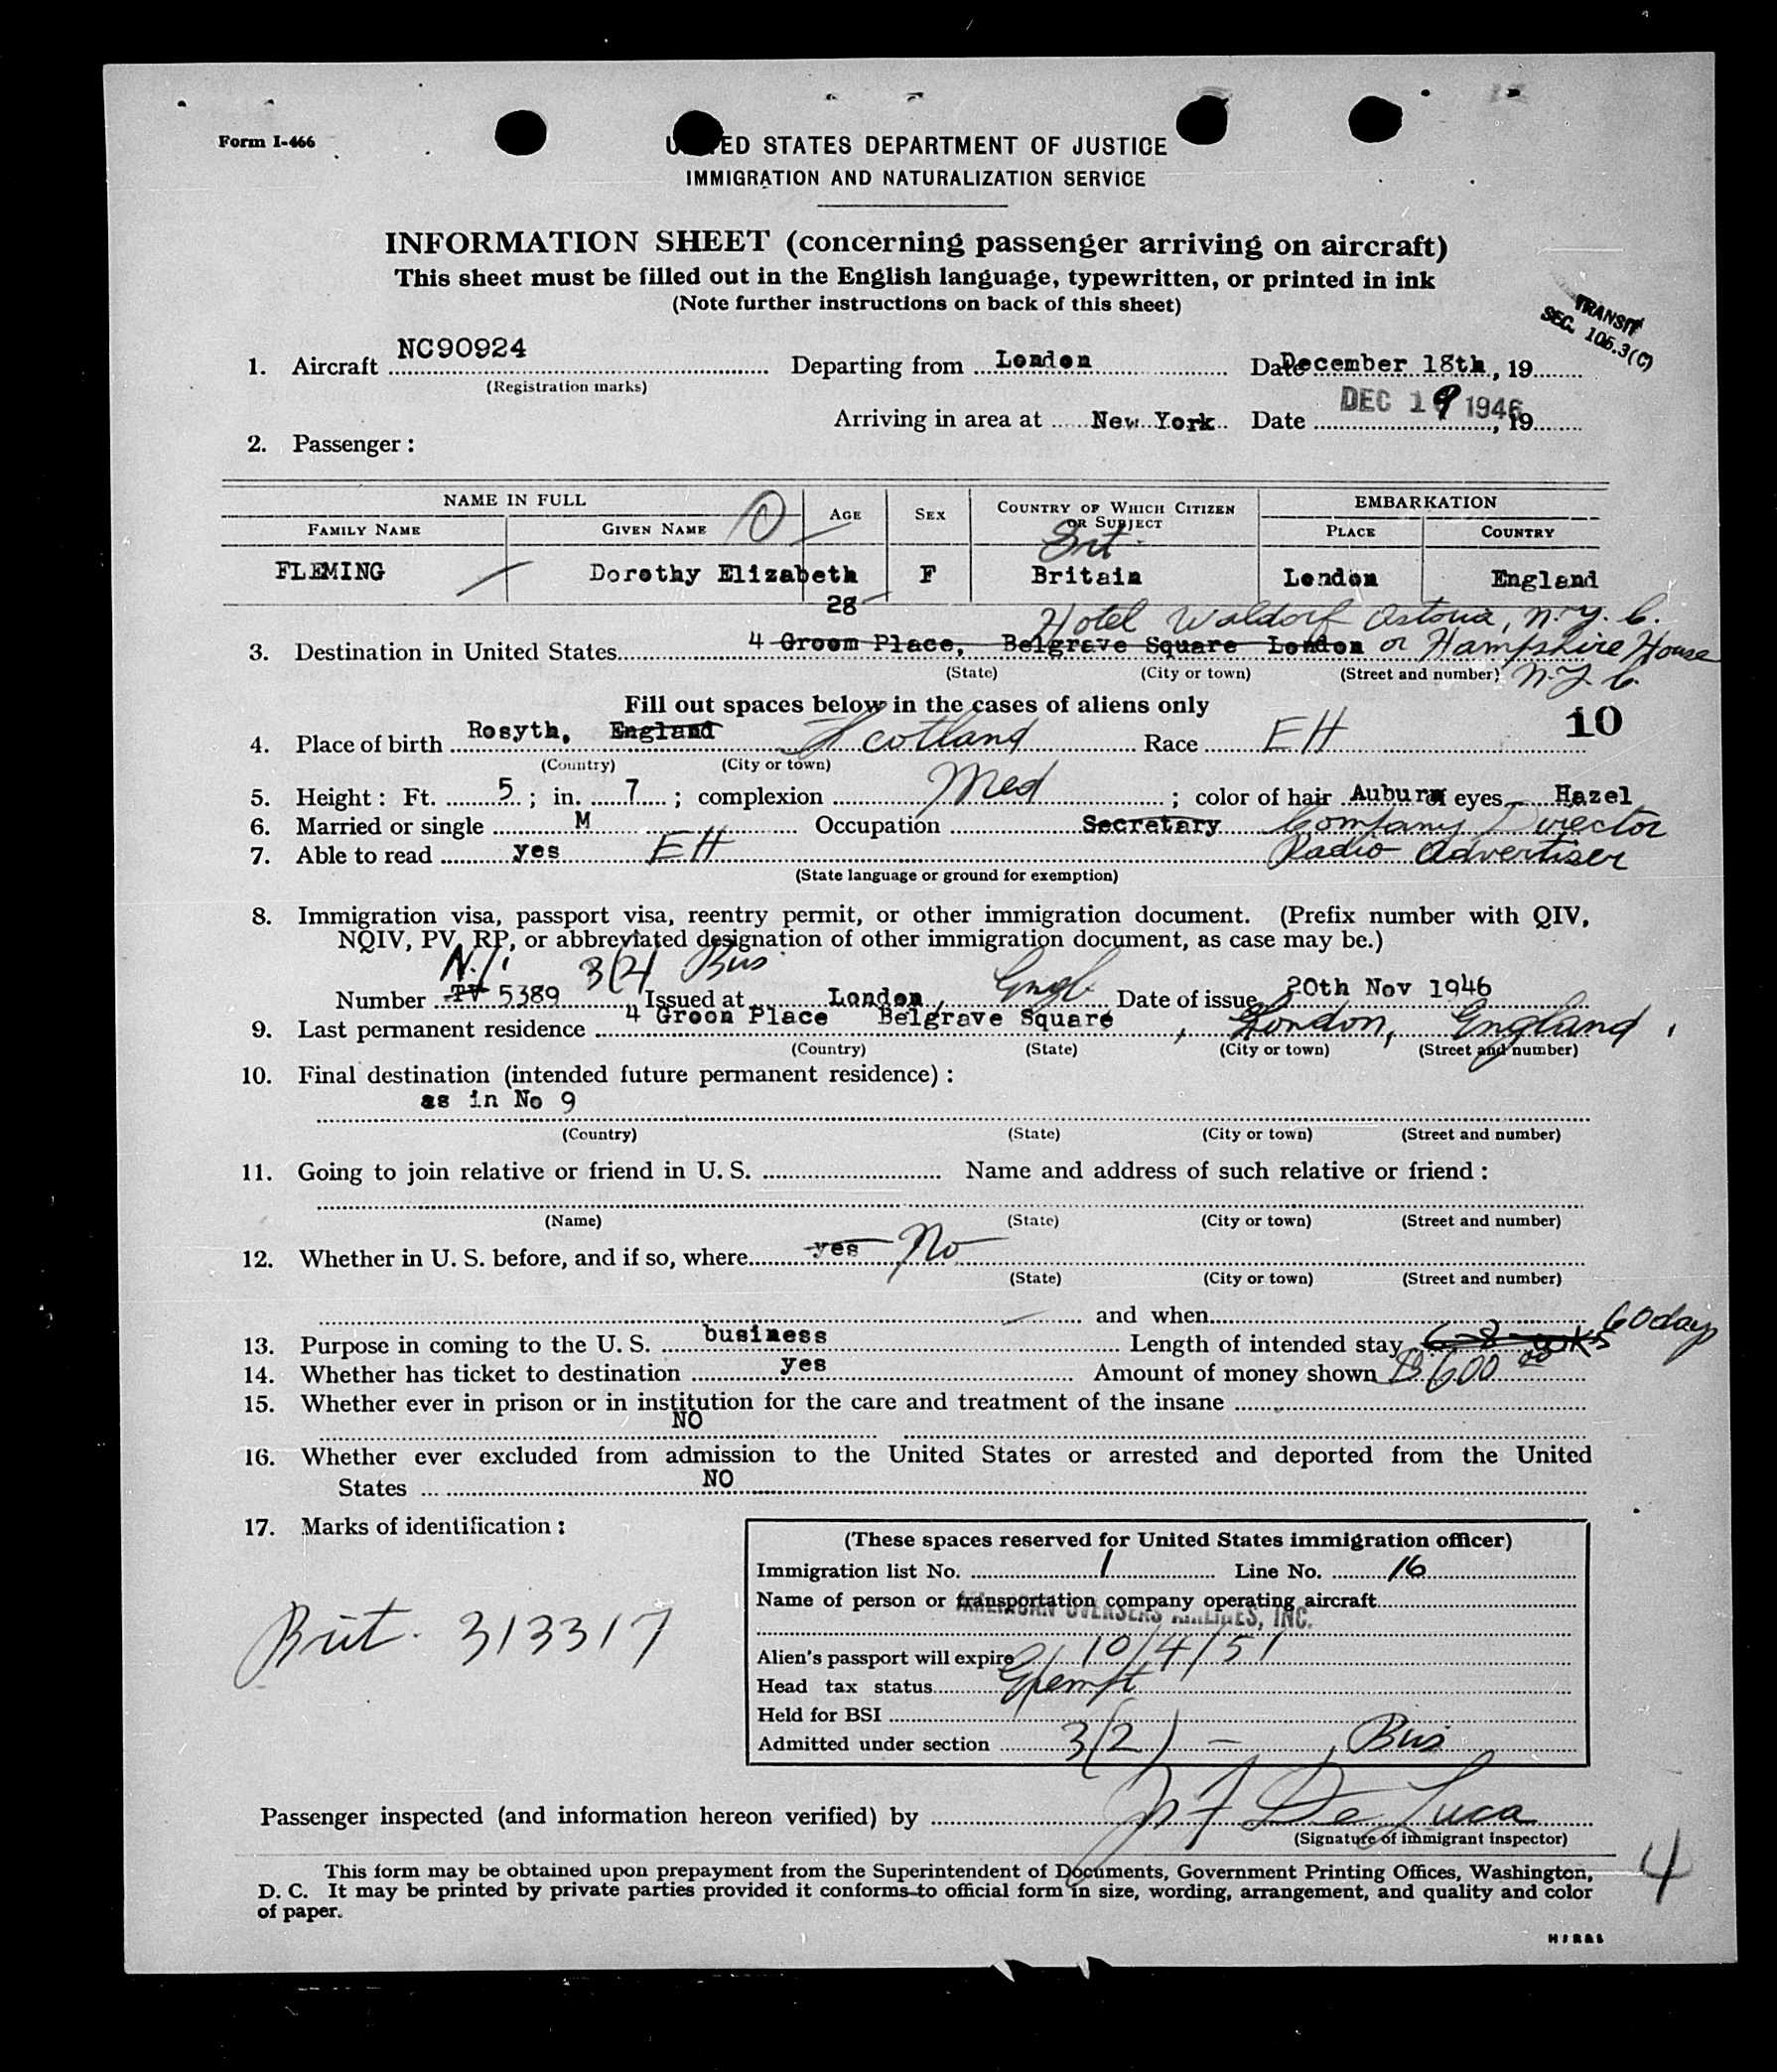 Form I-466
UNITED STATES DEPARTMENT OF JUSTICE
IMMIGRATION AND NATURALIZATION SERVICE
INFORMATION SHEET (concerning passenger arriving on aircraft)
This sheet must be filled out in the English language, typewritten, or printed in ink
(Note further instructions on back of this sheet)
TRANSIT
SEC. 105.3(C)
1. Aircraft NC90924 Departing from London Date December 18th, 19
(Registration marks)
Arriving in area at New York Date DEC 19 1946, 19
2. Passenger:
NAME IN FULL AGE SEX COUNTRY OF WHICH CITIZEN OR SUBJECT EMBARKATION
FAMILY NAME GIVEN NAME PLACE COUNTRY
Brit.
FLEMING Dorothy Elizabeth 28 F Britain London England
Hotel Waldorf Astoria, N.Y.C.
3. Destination in United States 4 Groom Place, Belgrave Square London or Hampshire House
(State) (City or town) (Street and number) N.Y.C.
Fill out spaces below in the cases of aliens only
10
4. Place of birth Rosyth, England Scotland Race EH
(Country) (City or town)
5. Height: Ft. 5; in. 7; complexion Med; color of hair Auburn eyes Hazel
6. Married or single M Occupation Secretary Company Director
7. Able to read yes EH Radio Advertiser
(State language or ground for exemption)
8. Immigration visa, passport visa, reentry permit, or other immigration document. (Prefix number with QIV,
NQIV, PV, RP, or abbreviated designation of other immigration document, as case may be.)
3(2) Bus
Number TV 5389, Issued at London, Engl. Date of issue 20th Nov 1946
9. Last permanent residence 4 Groon Place Belgrave Square, London, England
(Country) (State) (City or town) (Street and number)
10. Final destination (intended future permanent residence):
as in No 9
(Country) (State) (City or town) (Street and number)
11. Going to join relative or friend in U. S. Name and address of such relative or friend:
(Name) (State) (City or town) (Street and number)
12. Whether in U. S. before, and if so, where yes No
(State) (City or town) (Street and number)
and when
13. Purpose in coming to the U. S. business Length of intended stay 6-8 wks 60 days
14. Whether has ticket to destination yes Amount of money shown $600.00
15. Whether ever in prison or in institution for the care and treatment of the insane
NO
16. Whether ever excluded from admission to the United States or arrested and deported from the United
States NO
17. Marks of identification:
Brit. 313317
(These spaces reserved for United States immigration officer)
Immigration list No. 1 Line No. 16
Name of person or transportation company operating aircraft
AMERICAN OVERSEAS AIRLINES, INC.
Alien's passport will expire 10/4/51
Head tax status Exempt
Held for BSI
Admitted under section 3(2) - Bus
Passenger inspected (and information hereon verified) by De Luca
(Signature of immigrant inspector)
This form may be obtained upon prepayment from the Superintendent of Documents, Government Printing Offices, Washington,
D. C. It may be printed by private parties provided it conforms to official form in size, wording, arrangement, and quality and color
of paper.
4